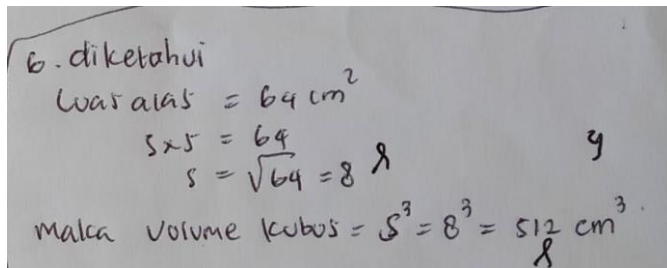 6. diketahui
luas alas = 64 cm²
s x s = 64
s = √64 = 8
4
maka volume kubus = s³ = 8³ = 512 cm³